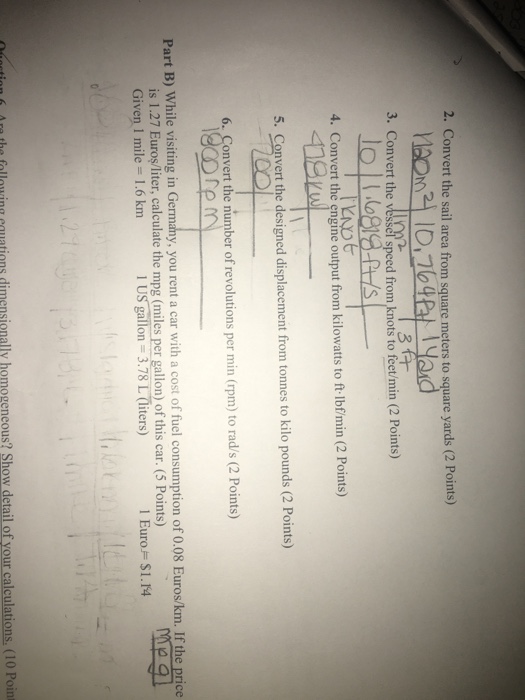 2. Convert the sail area from square meters to square yards (2 Points)
1200m² | 10.764ft | 1yard
1m² | 3ft
3. Convert the vessel speed from knots to feet/min (2 Points)
10 | 1.6818 ft/s
1knot
4. Convert the engine output from kilowatts to ft·lbf/min (2 Points)
478kW
5. Convert the designed displacement from tonnes to kilo pounds (2 Points)
700
6. Convert the number of revolutions per min (rpm) to rad/s (2 Points)
1800rpm
Part B) While visiting in Germany, you rent a car with a cost of fuel consumption of 0.08 Euros/km. If the price
is 1.27 Euros/liter, calculate the mpg (miles per gallon) of this car. (5 Points)
mpg
Given 1 mile = 1.6 km 1 US gallon = 3.78 L (liters) 1 Euro = $1.14
Question 6 Are the following equations dimensionally homogeneous? Show detail of your calculations. (10 Point